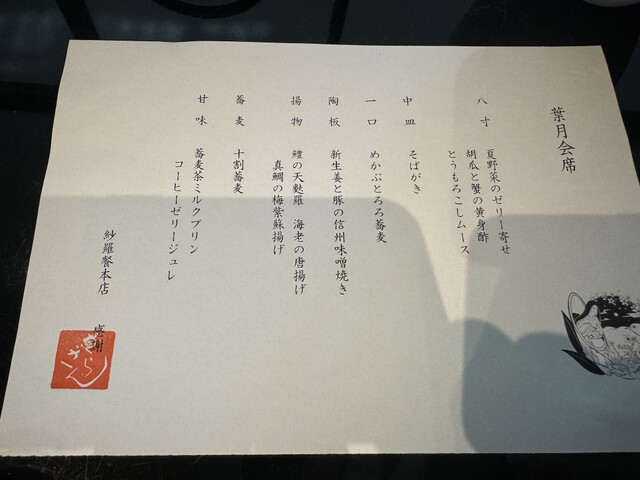 葉月会席
八寸 夏野菜のゼリー寄せ
胡瓜と蟹の黄身酢
とうもろこしムース
中皿 そばがき
一口 めかぶとろろ蕎麦
陶板 新生姜と豚の信州味噌焼き
揚物 鱧の天麩羅 海老の唐揚げ
真鯛の梅紫蘇揚げ
蕎麦 十割蕎麦
甘味 蕎麦茶ミルクプリン
コーヒーゼリージュレ
紗羅餐本店
感謝
さらざん